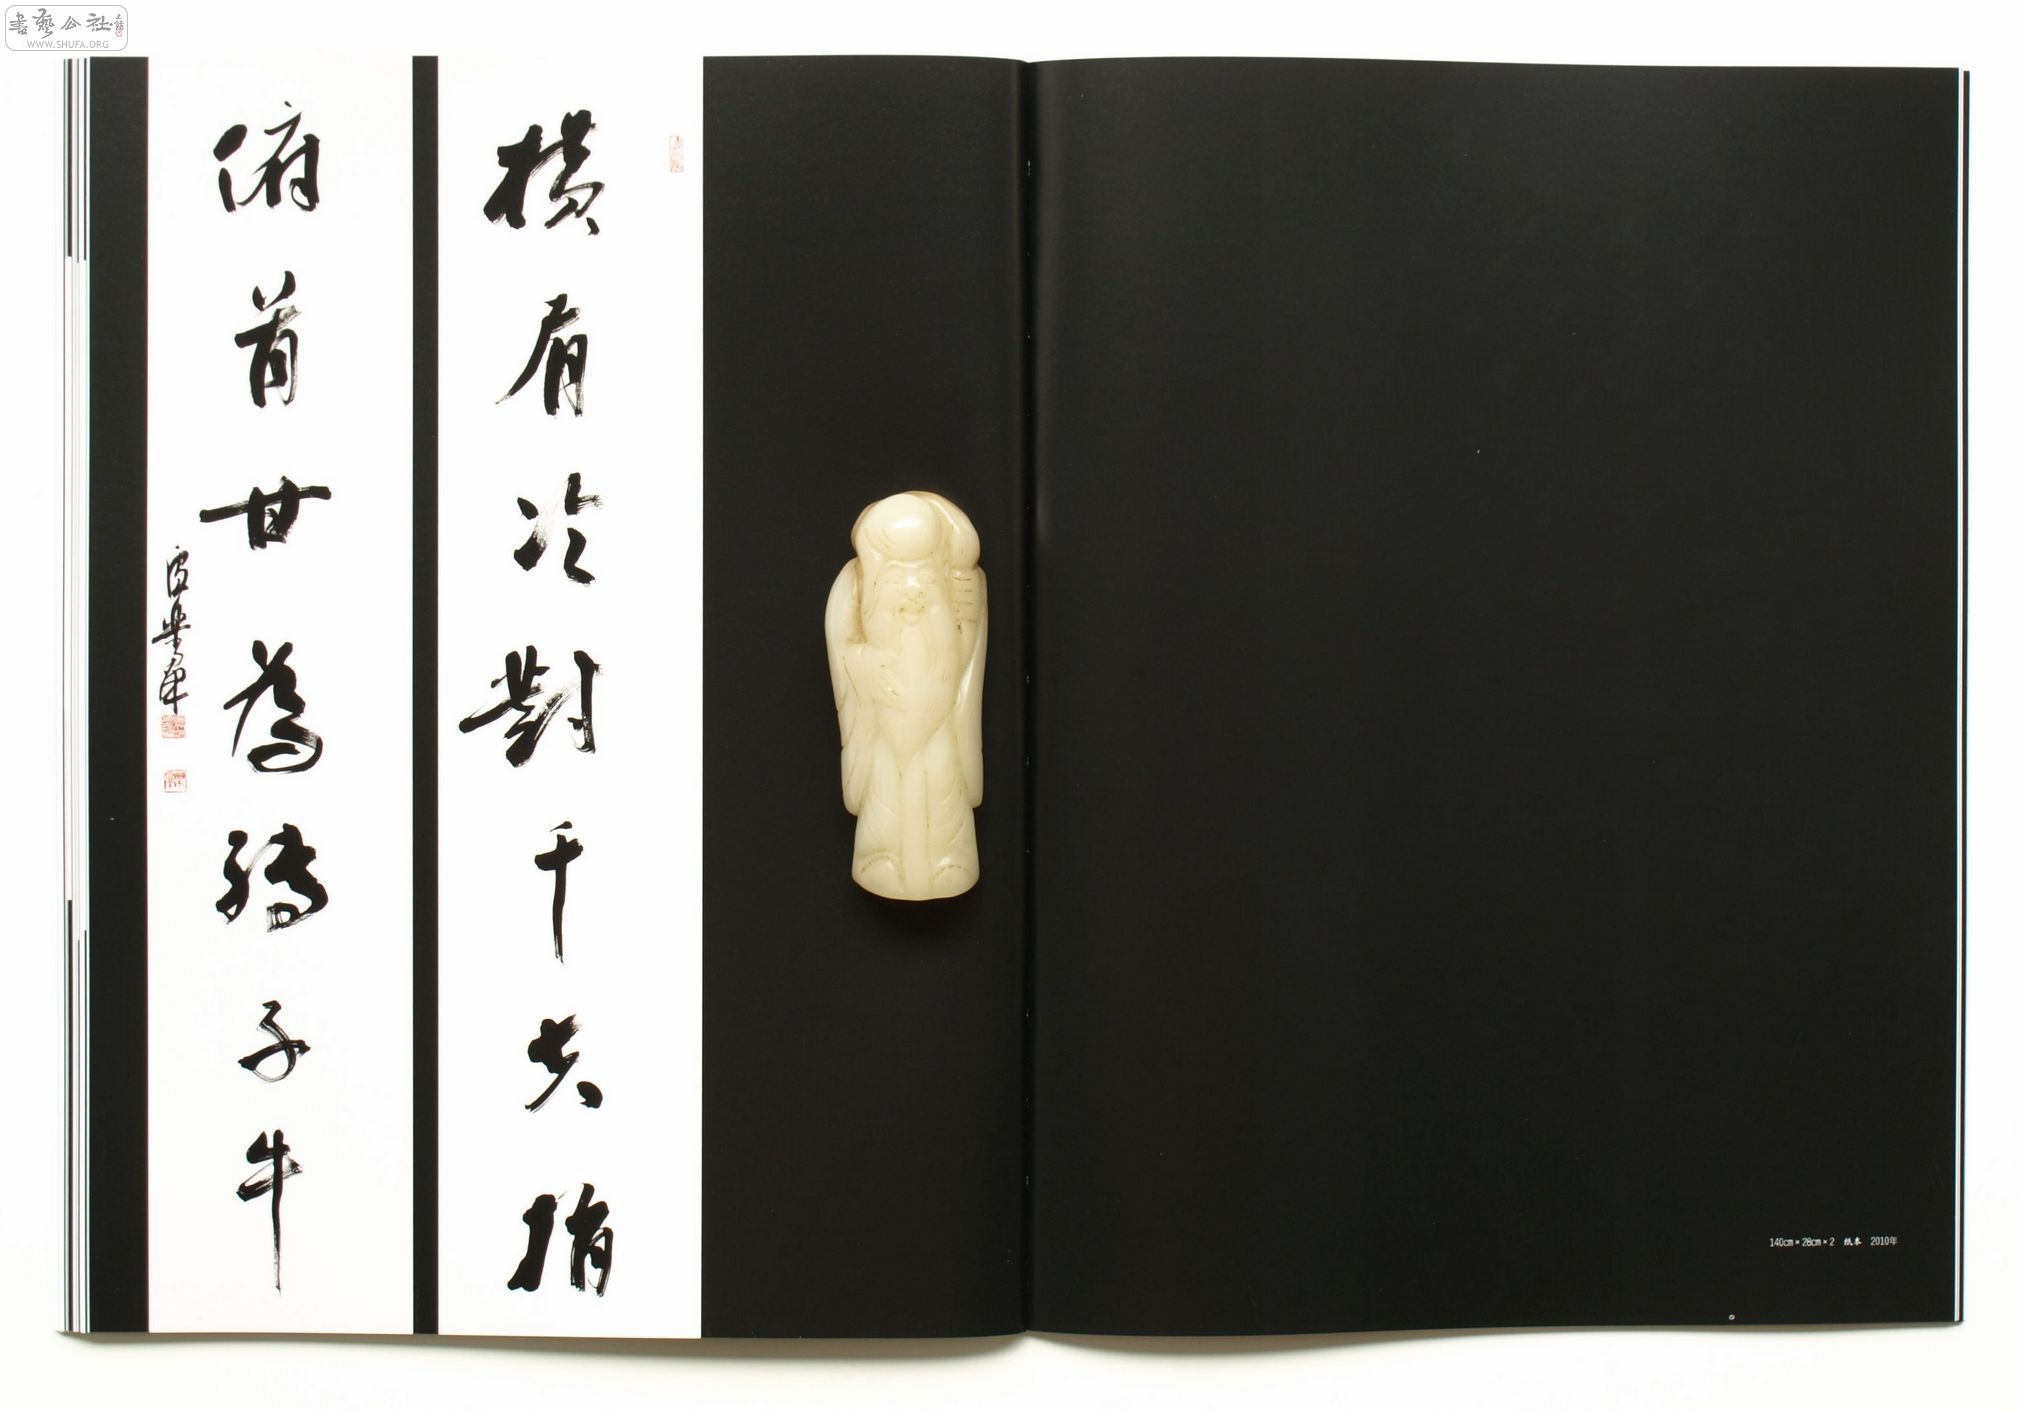 書藝公社
WWW.SHUFA.ORG
横眉冷對千夫指
俯首甘為孺子牛
140cm×28cm×2 纸本 2010年